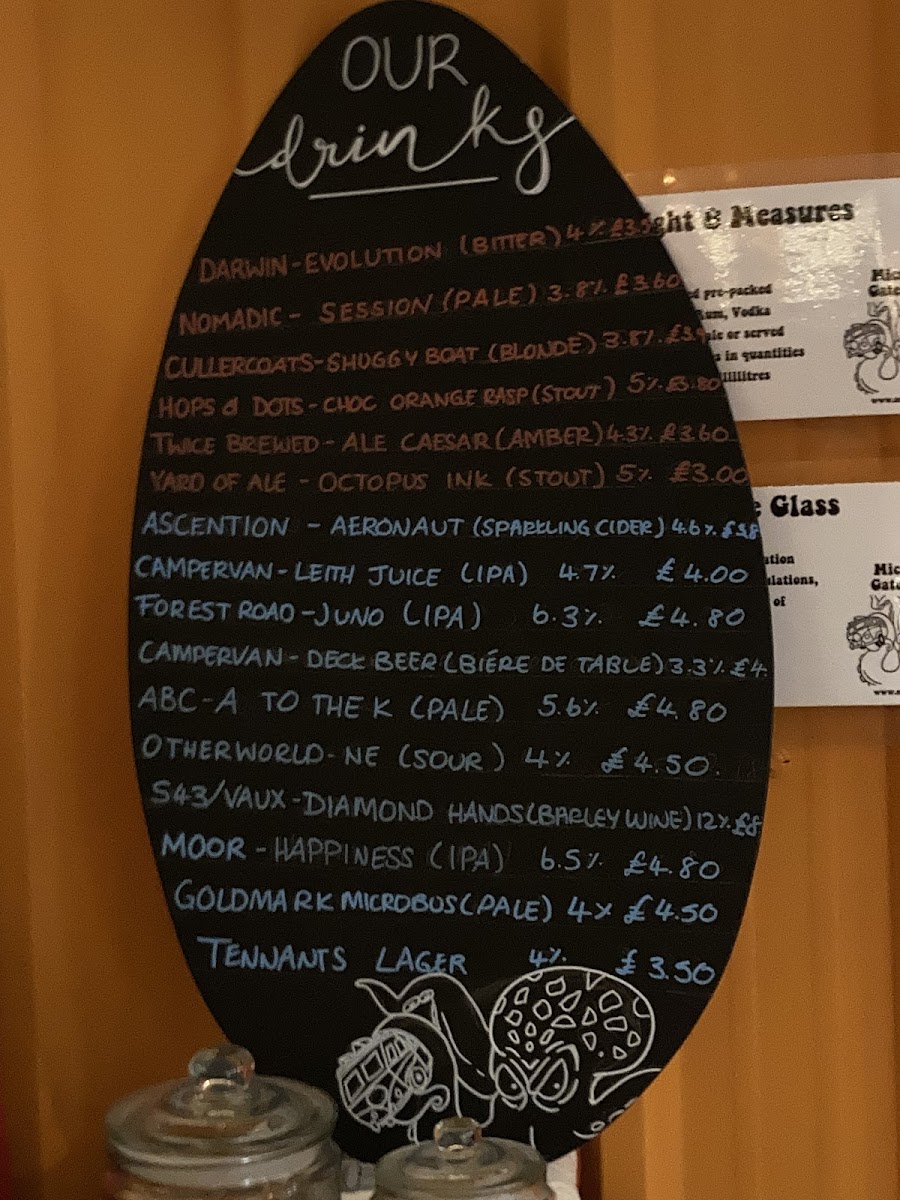 OUR
drinks
DARWIN-EVOLUTION (BITTER) 4% £3.5
NOMADIC - SESSION (PALE) 3.8% £3.60
CULLERCOATS-SHUGGY BOAT (BLONDE) 3.8% £3.
HOPS & DOTS - CHOC ORANGE RASP (STOUT) 5% £3.80
TWICE BREWED - ALE CAESAR (AMBER) 4.3% £3.60
YARD OF ALE - OCTOPUS INK (STOUT) 5% £3.00
ASCENTION - AERONAUT (SPARKLING CIDER) 4.6% £3.8
CAMPERVAN-LEITH JUICE (IPA) 4.7% £4.00
FOREST ROAD-JUNO (IPA) 6.3% £4.80
CAMPERVAN-DECK BEER (BIÉRE DE TABLE) 3.3% £4.
ABC-A TO THE K (PALE) 5.6% £4.80
OTHERWORLD-NE (SOUR) 4% £4.50.
S43/VAUX-DIAMOND HANDS (BARLEY WINE) 12% £8
MOOR - HAPPINESS (IPA) 6.5% £4.80
GOLDMARK MICROBUS (PALE) 4% £4.50
TENNANTS LAGER 4% £3.50
ght & Measures
pre-packed
Rum, Vodka
or served
in quantities
Mic
Gate
Glass
of
Mic
Gate